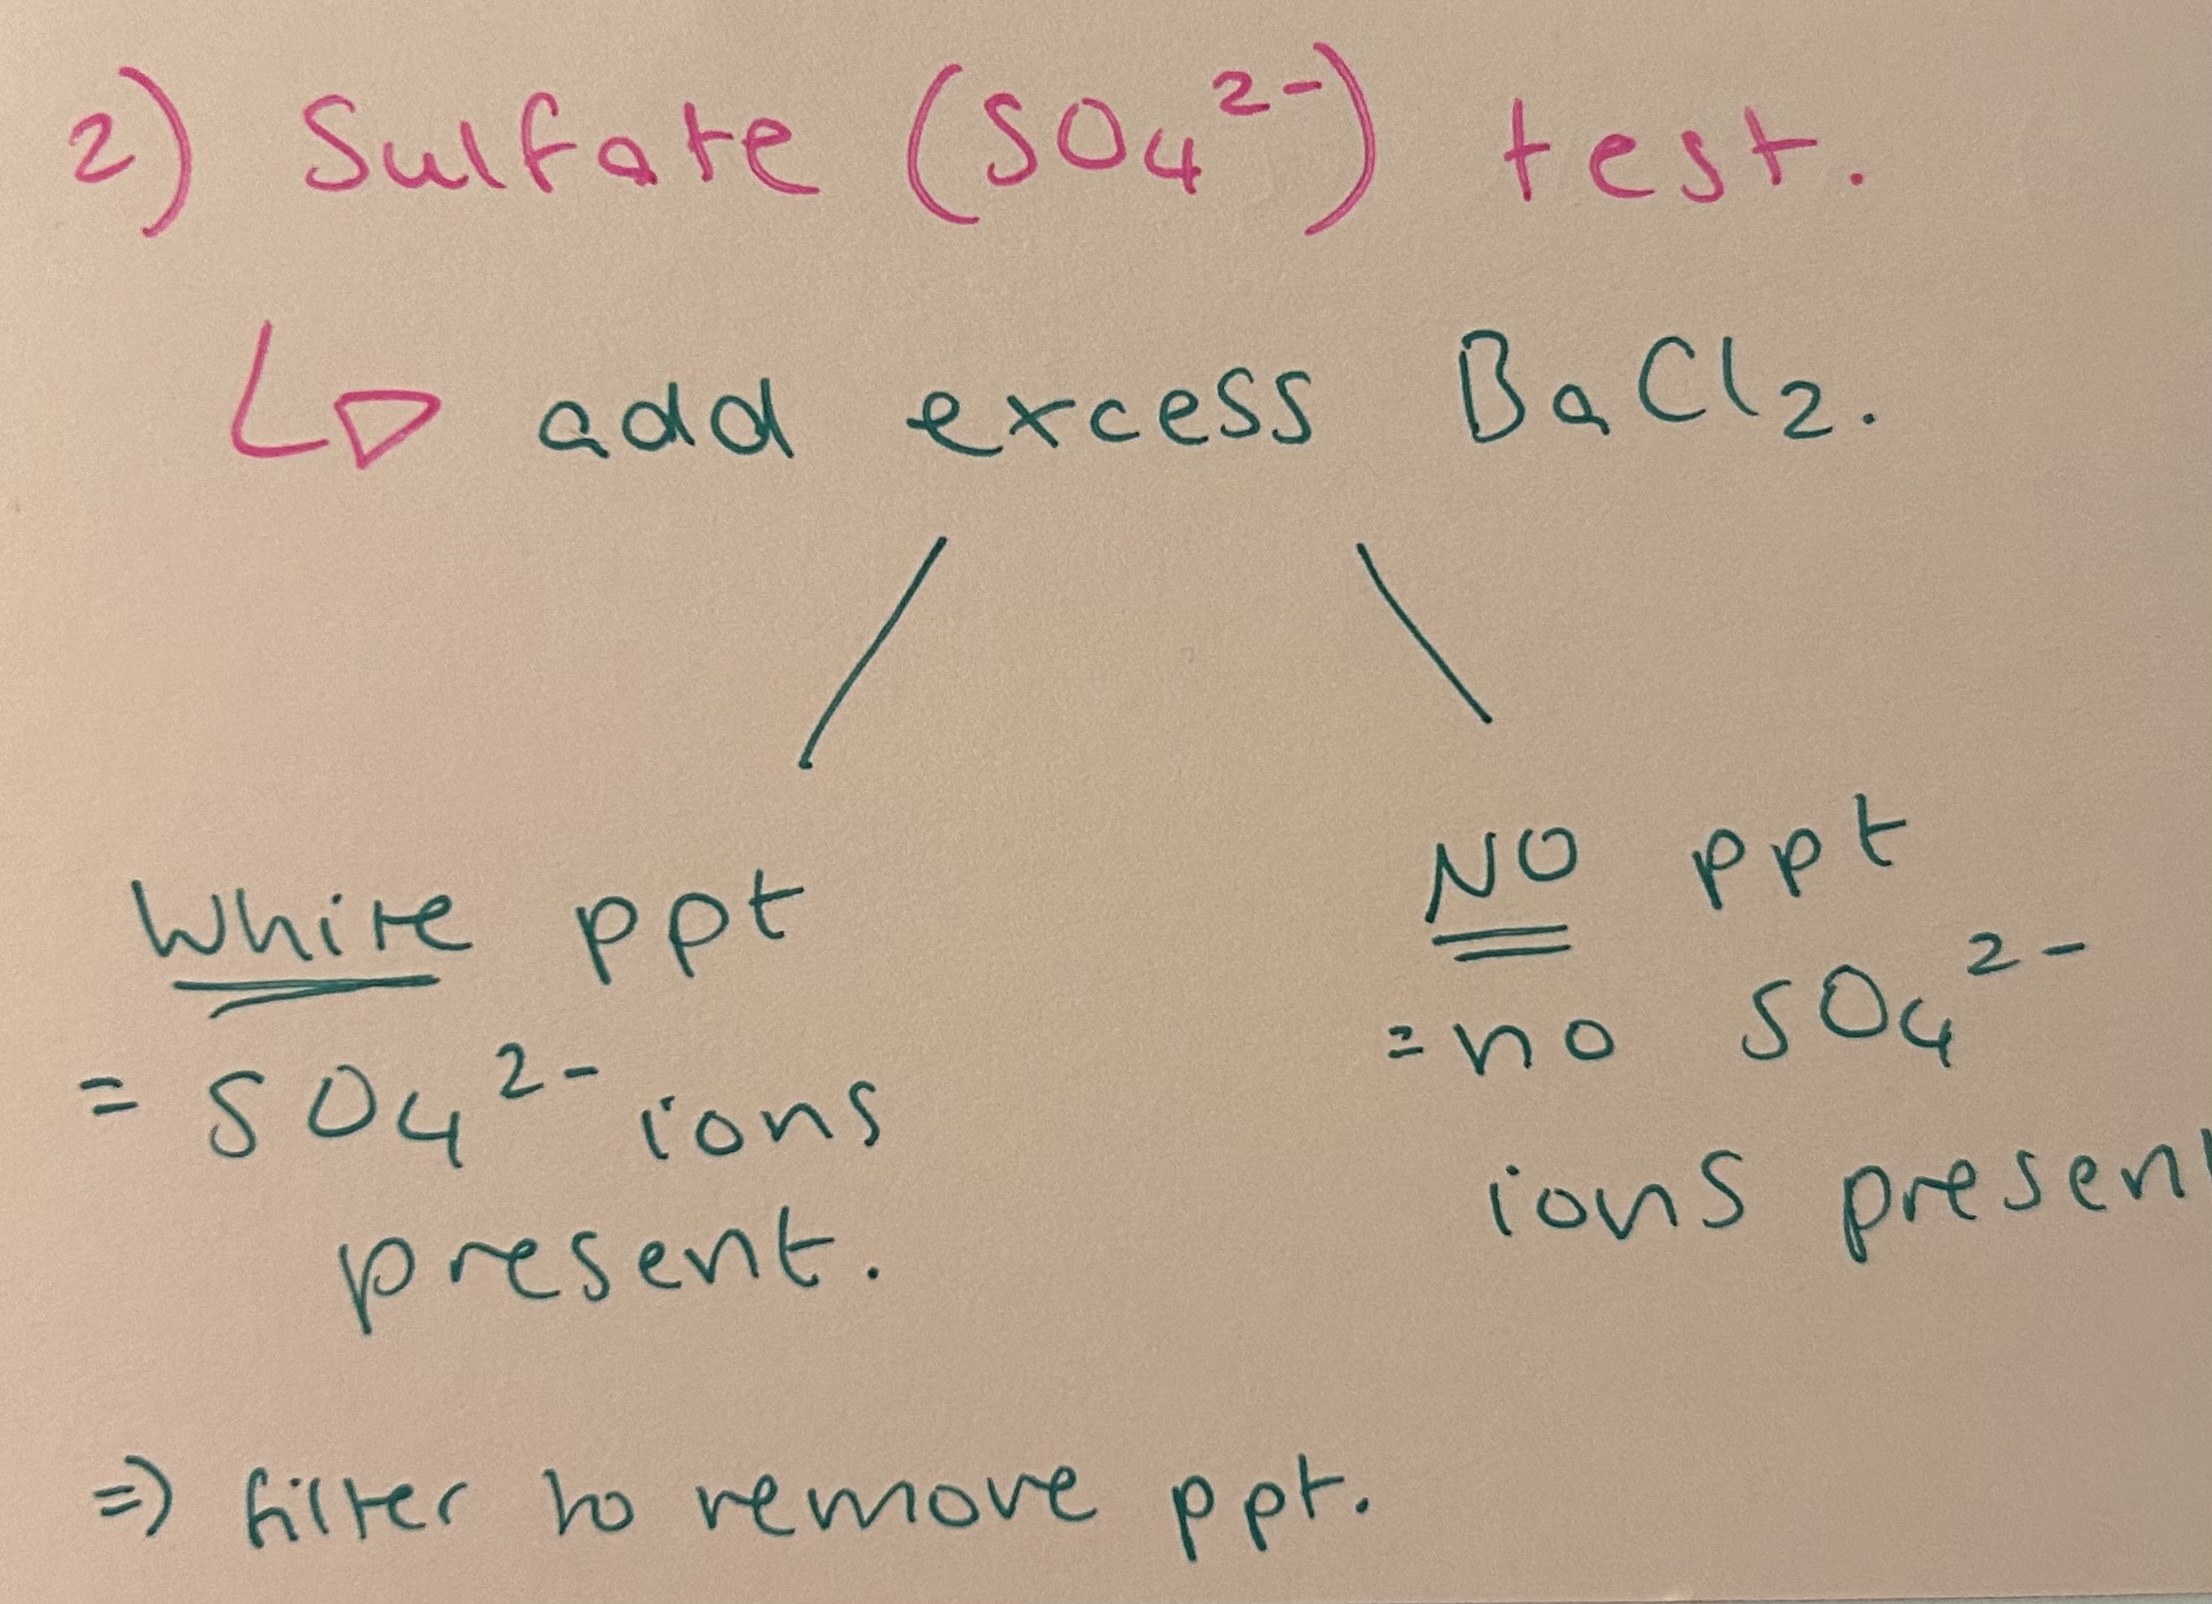 2) Sulfate (SO₄²⁻) test.
↳ add excess BaCl₂.
White ppt
= SO₄²⁻ ions
present.
NO ppt
= no SO₄²⁻
ions presen
⇒ filter to remove ppt.